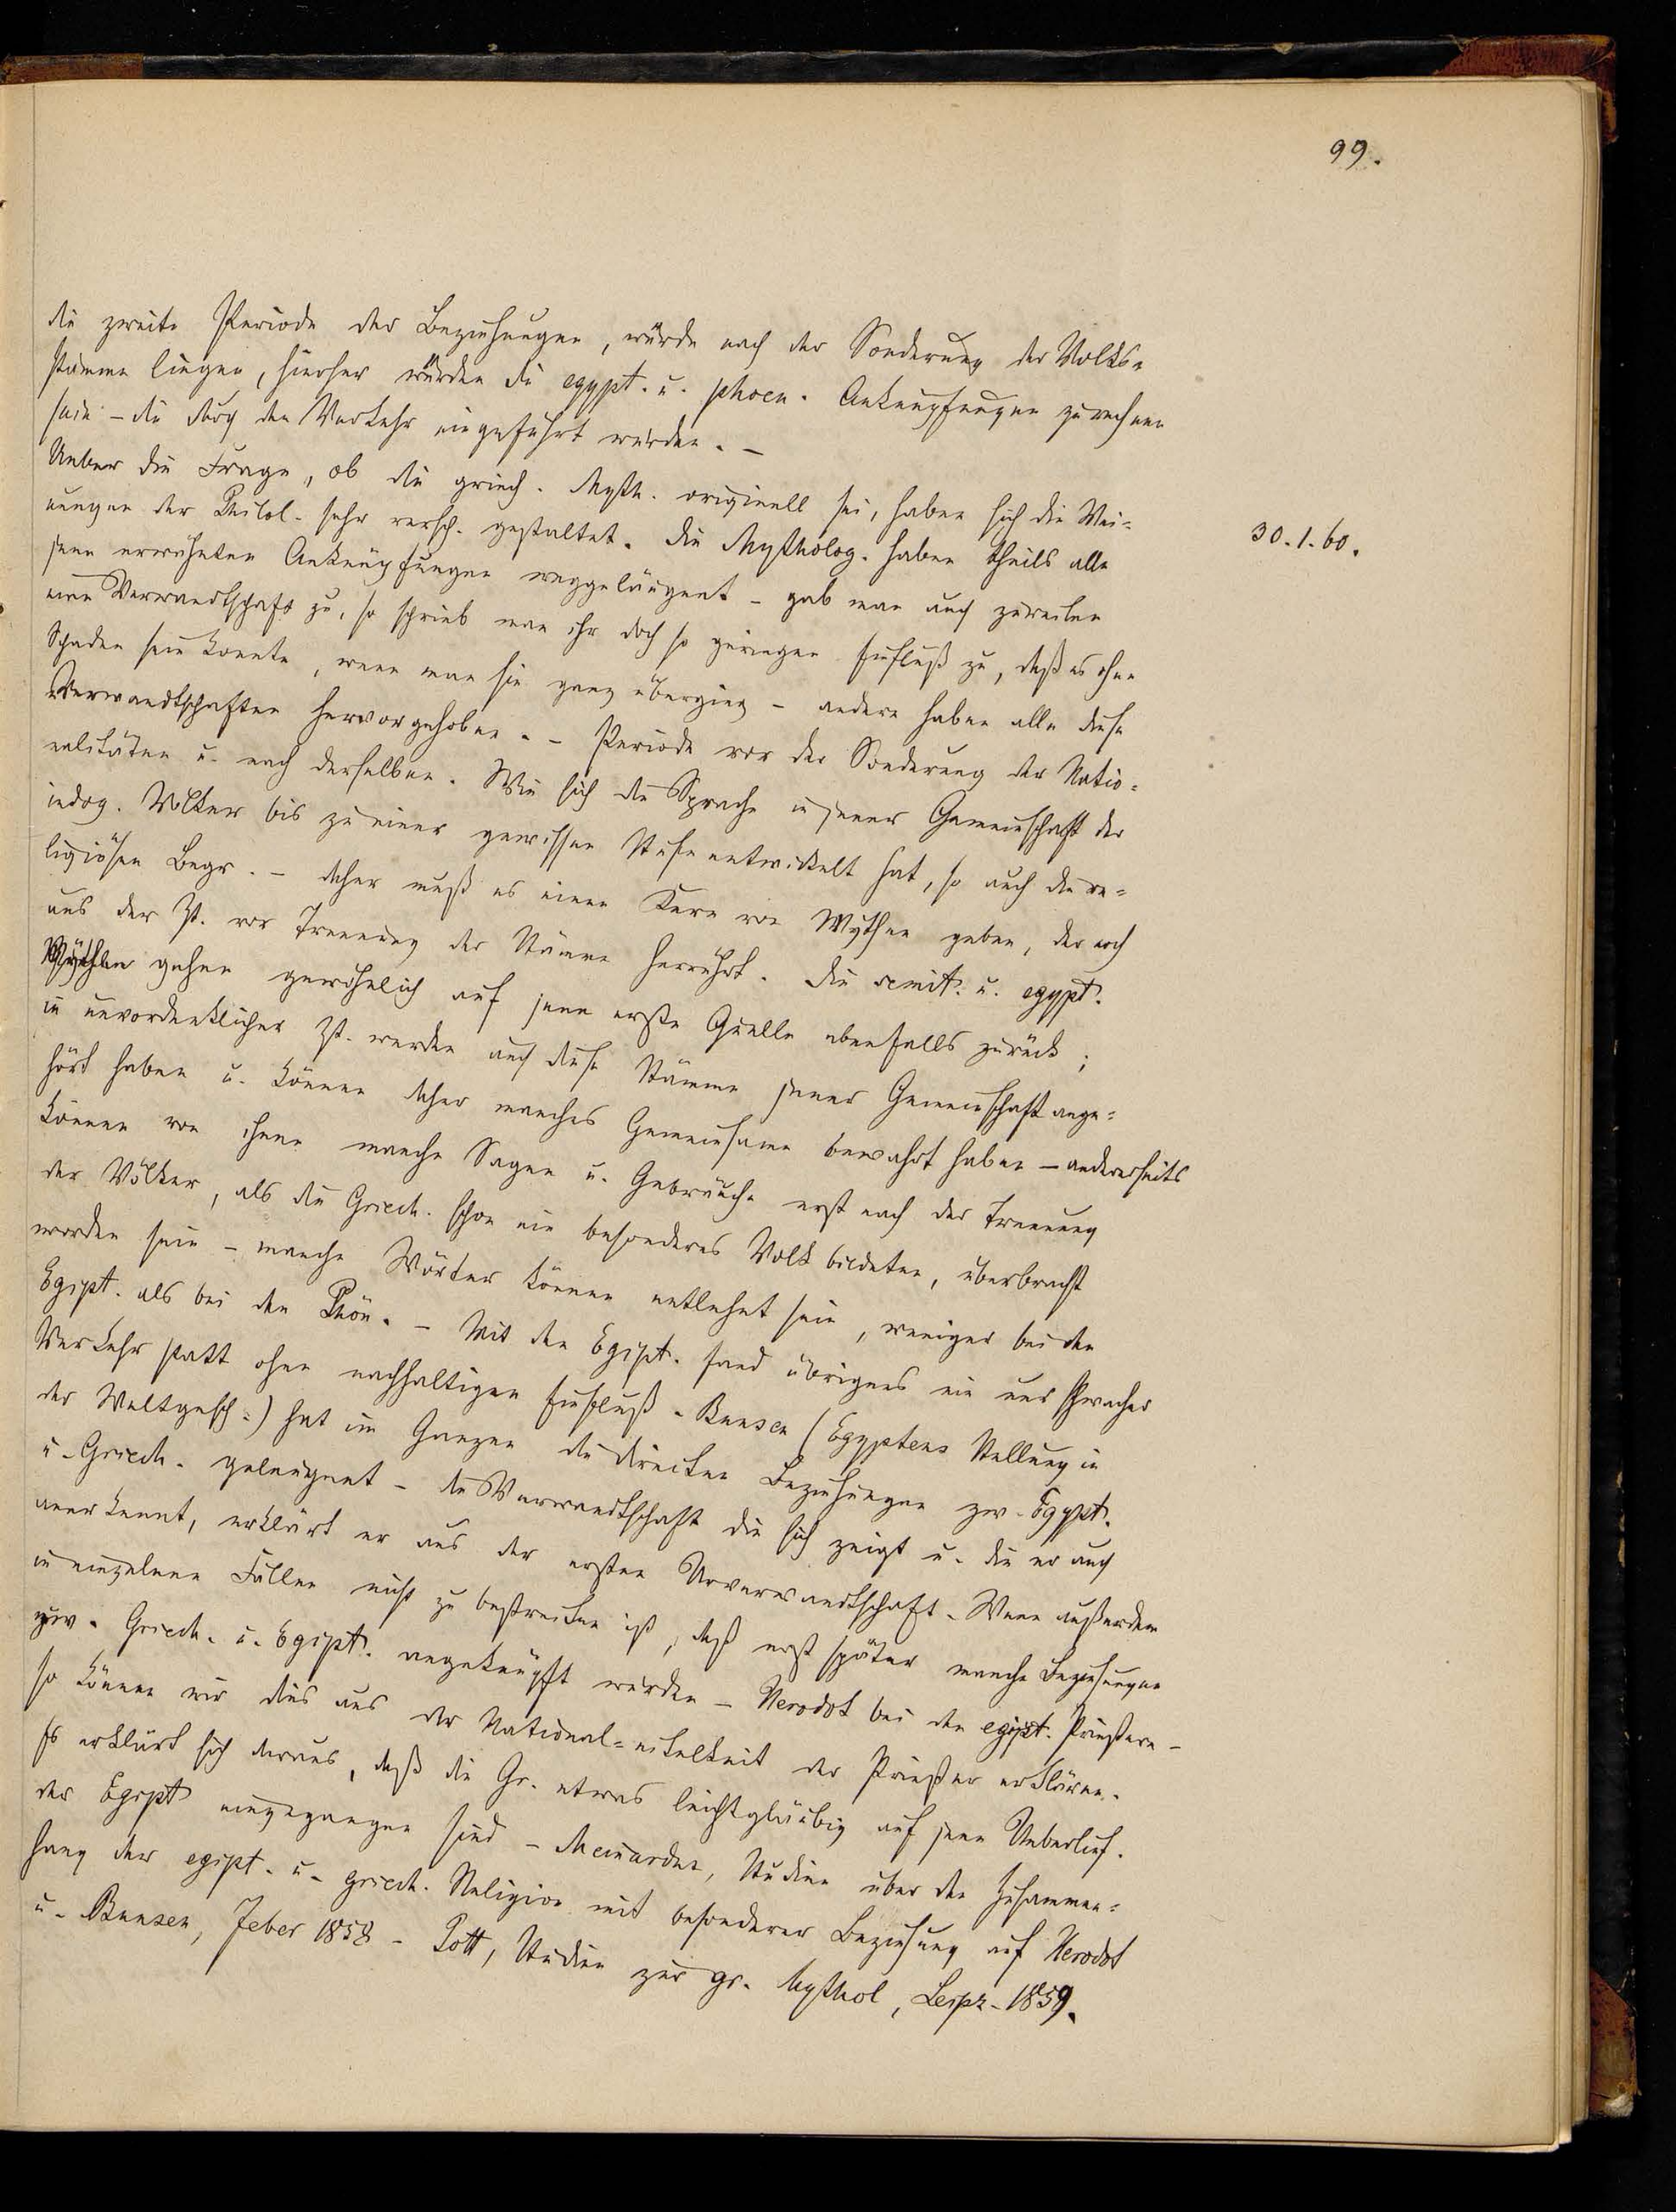 99.
die zweite Periode der Beziehungen, würde nach der Sonderung der Volks-
stämme liegen, hierher würden die egypt. u. phoen. Anknüpfungen zu rechnen
sein – die durch den Verkehr eingeführt wurden. –
Ueber die Frage, ob die griech. Myth. originell sei, haben sich die Mei-
30.1.60.
nungen der Philol. sehr versch. gestaltet. Die Mytholog. haben theils alle
jene erwähnten Anknüpfungen weggeläugnet – gab man auch zuweilen
eine Verwandtschaft zu, so schrieb man ihr doch so geringen Einfluß zu, daß es ohne
Schaden sein konnte, wenn man sie ganz überging – andere haben alle diese
Verwandtschaften hervorgehoben. – Periode vor der Sonderung der Natio-
nalitäten u. nach derselben. Wie sich die Sprache in jener Gemeinschaft der
indog. Völker bis zu einer gewissen Stufe entwickelt hat, so auch die re-
ligiösen Begr. – daher muß es einen Kern von Mythen geben, der noch
aus der Zt. vor Trennung der Stämme herrührt. Die semit. u. egypt.
Mythen gehen gewöhnlich auf jene erste Quelle ebenfalls zurück;
in unvordenklicher Zt. werden auch diese Stämme jener Gemeinschaft ange-
hört haben u. können daher manches Gemeinsame bewahrt haben – andererseits
können von ihnen manche Sagen u. Gebräuche erst nach der Trennung
der Völker, als die Griech. schon ein besonderes Volk bildeten, überbracht
worden sein – manche Wörter können entlehnt sein, weniger bei den
Egipt. als bei den Phön. – Mit den Egipt. fand übrigens ein nur schwacher
Verkehr statt ohne nachhaltigen Einfluß. Bunsen (Egyptens Stellung in
der Weltgesch.) hat im Ganzen die direkten Beziehungen zw. Egypt.
u. Griech. geleugnet – die Verwandtschaft die sich zeigt u. die er auch
anerkennt, erklärt er aus der ersten Urverwandtschaft. Wenn außerdem
in einzelnen Fällen nicht zu bestreiten ist, daß erst später manche Beziehungen
zw. Griech. u. Egipt. angeknüpft wurden – Herodot bei den egipt. Priestern –
so können wir dies aus der National-eitelkeit der Priester erklären.
Es erklärt sich daraus, daß die Gr. etwas leichtgläubig auf jene Ueberlief.
der Egypt eingegangen sind – Meinardus, Studien über den Zusammen-
hang der egipt. u. griech. Religion mit besonderer Beziehung auf Herodot
u. Bunsen, Jeber 1858 – Pott, Studien zur gr. Mythol, Leipz. 1859.